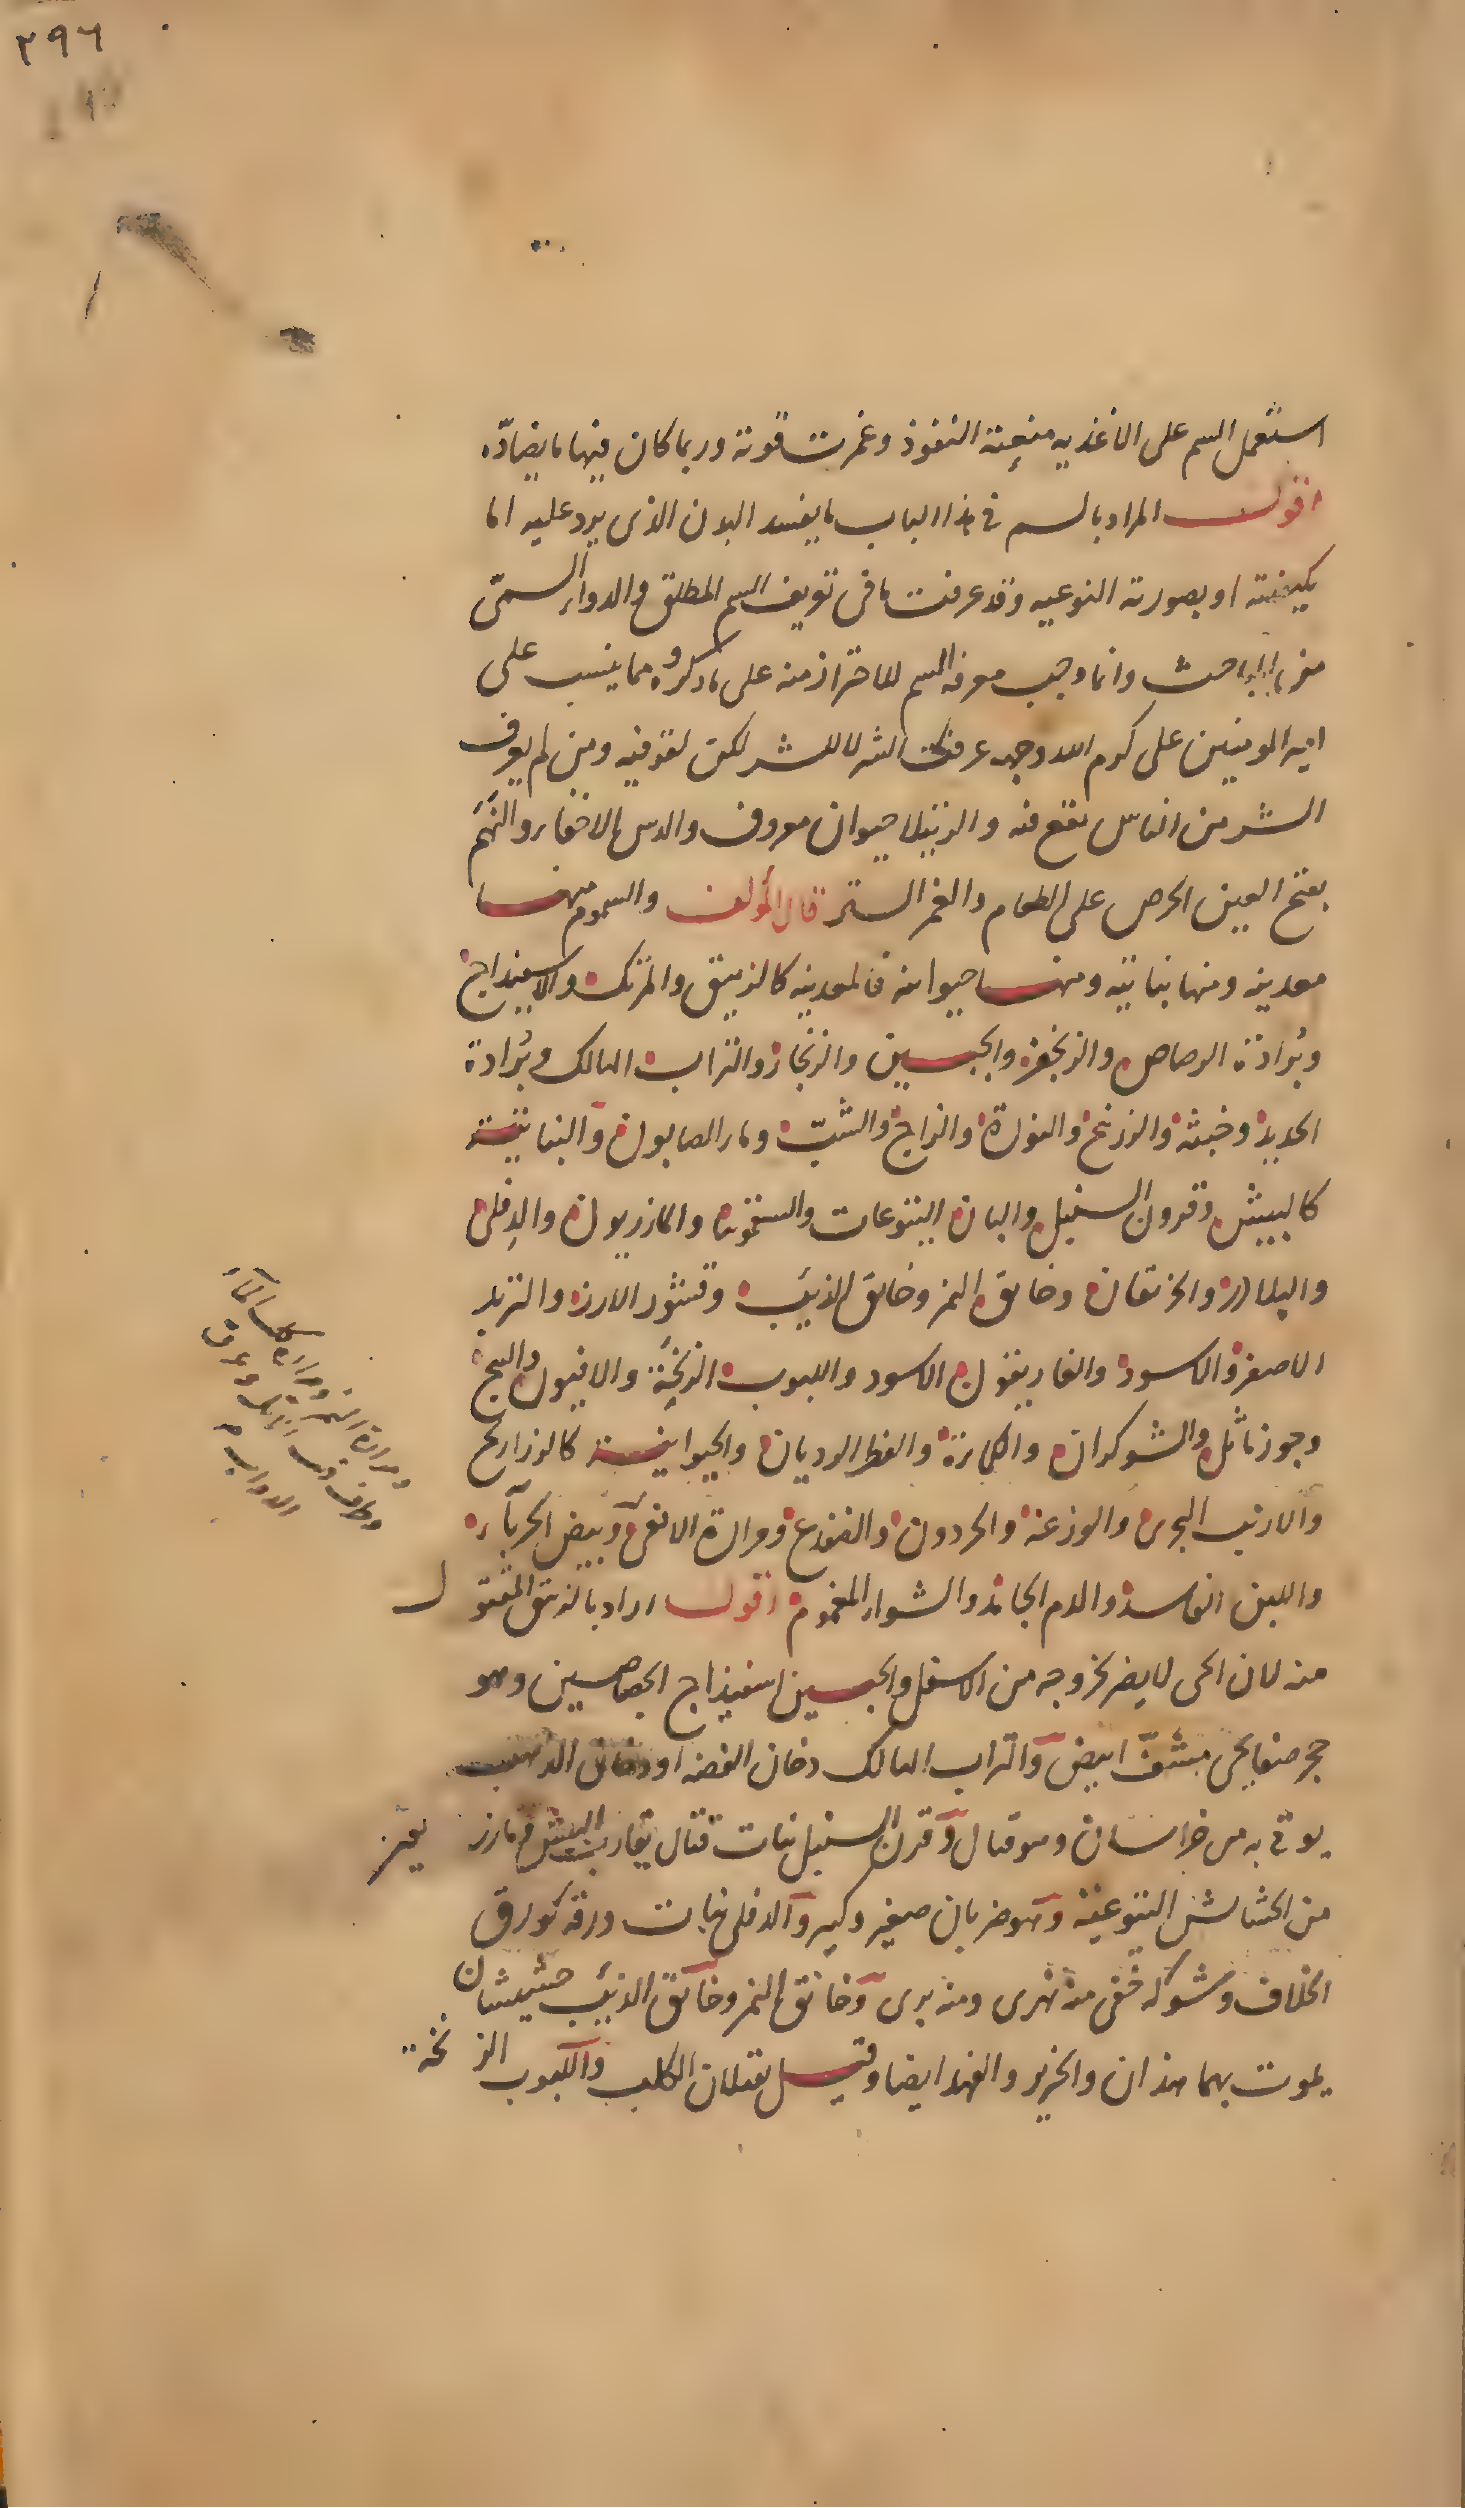 ٢٩٦
استعمل السم على الاغذيه منعته النفوذ وغمرت قوته وربما كان فيها ما يضادّه
اقول المراد بالسم فى هذا الباب ما يفسد البدن الذى يرد عليه اما
بكيفيته او بصورته النوعيه وقد عرفت ما فى تعريف السم المطلق والدواء السمّى
من المباحث وانما وجب معرفة السم للاحتراز منه على ما ذكروه مما ينسب على
امير المومنين على كرم الله وجهه عرفت الشر لا للشر لكن لتوقيه ومن لم يعرف
الشر من الناس يقع فيه والرتيلا حيوان معروف والدس الاخفاء والنَّهَم
بفتح العين الحرص على الطعام والغمر الستر قال المؤلف والسموم منها
معدنيه ومنها نباتيه ومنها حيوانيه فالمعدنيه كالزيبق والمرتك والاسفيداج
وبُرادة الرصاص والزنجفر والجبسين والزنجار والتراب الهالك وبُرادة
الحديد وخبثه والزرنيخ والنورة والزاج والشبّ وماء الصابون والنباتية
كالبيش وقرون السنبل والبان اليتوعات والسقمونيا والمازريون والدِفلى
والبلادر والخربقان وخانق النمر وخانق الذيب وقشور الارز والتربد
الاصفر والاسود والغاريقون الاسود واللبوب الزنخة والافيون والبنج
وجوز ماثل والشوكران والكزبرة والفطر الرديان والحيوانية كالذراريح
والارنب البحرى والوزغة والحردون والضفدع ومرارة الافعى وبيض الحرباء
ومرارة النمر ومرارة كلب الماء
وطرف ذنب الايل وعرق
الدواب
واللبن الفاسد والدم الجامد والشواء المغموم اقول اراد بالزيبق المقتول
منه لان الحى لا يضر لخروجه من الاسفل والجبسين اسفيذاج الجصاصين وهو
حجر صفايحى مشفّ ابيض والتراب الهالك دخان الفضه او دخان الذهب
يوتى به من خراسان وهو قتال وقرن السنبل نبات قتال يقارب البيش والمازريون
من الحشائش اليتوعية وهو ضربان صغير وكبير والدفلى نبات ورقه كورق
الخلاف وشوكه خفى منه نهرى ومنه برى وخانق النمر وخانق الذيب حشيشتان
يموت بهما هذان والخنزير والفهد ايضا وقيل يقتلان الكلب واللبوب الزنخة